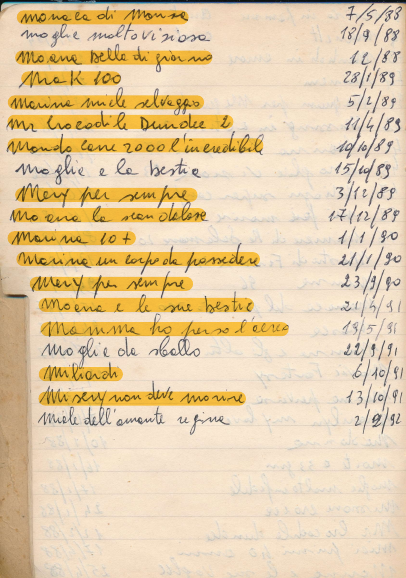 monaca di Monza 7/5/88
moglie molto viziosa 18/9/88
Moana bella di giorno 12/88
Mak 100 28/1/89
Marina mile selvaggo 5/2/89
Mr Crocodile Dundee 2 11/4/89
Mondo cane 2000 l'incredibile 10/10/89
Moglie e la bestia 15/10/89
Mery per sempre 3/12/89
Moana la scandalosa 17/12/89
Marina 10+ 1/1/90
Marina un corpo da possedere 21/1/90
Mery per sempre 23/9/90
Moana e le sue bestie 21/4/91
Mamma ho perso l'aereo 19/5/91
Moglie da sballo 22/9/91
Miliardi 6/10/91
Misery non deve morire 13/10/91
Miele dell'amante regina 2/2/92